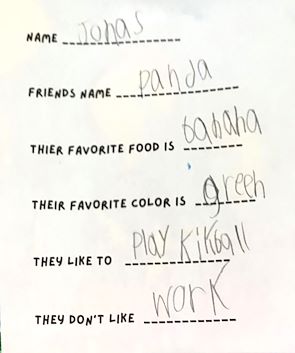 NAME Jonas
FRIENDS NAME panda
THIER FAVORITE FOOD IS banana
THEIR FAVORITE COLOR IS green
THEY LIKE TO Play kikball
THEY DON'T LIKE work